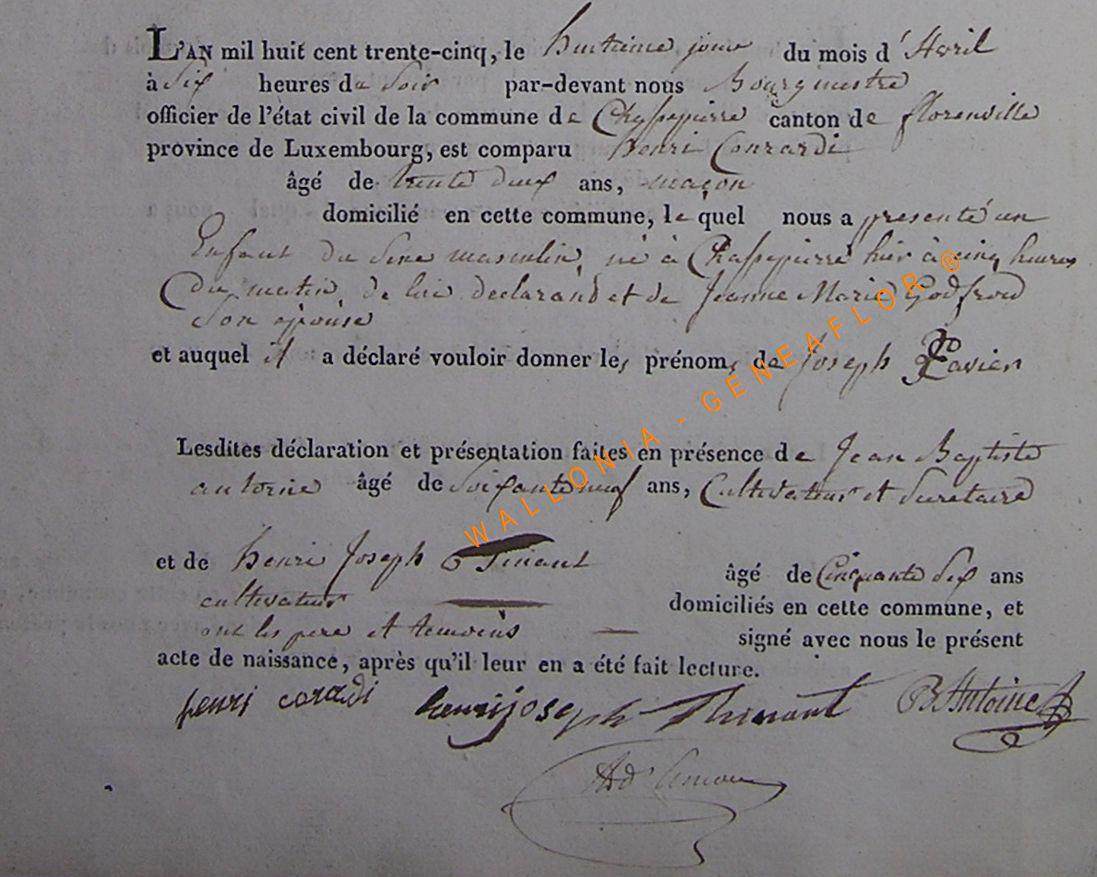 L'AN mil huit cent trente-cinq, le huitieme jour du mois d'Avril
à six heures du soir par-devant nous Bourgmestre
officier de l'état civil de la commune de Chassepierre canton de florenville
province de Luxembourg, est comparu henri Conrardi
âgé de trente deux ans, maçon
domicilié en cette commune, le quel nous a presenté un
Enfant du sexe masculin, né à Chassepierre hier à cinq heures
Du matin, de lui declarand et de Jeanne Marie Godfroid
Son epouse
et auquel il a déclaré vouloir donner les prénoms de joseph Xavier
Lesdites déclaration et présentation faites en présence de Jean Baptiste
antoine âgé de soixanteneuf ans, Cultivateur et Secretaire
et de henri Joseph Tinant âgé de Cinquante six ans
cultivateur domiciliés en cette commune, et
ont les pere et temoins signé avec nous le présent
acte de naissance, après qu'il leur en a été fait lecture.
henri corardi henri joseph Thinant B Antoine
WALLONIA - GENEAFLOR ®